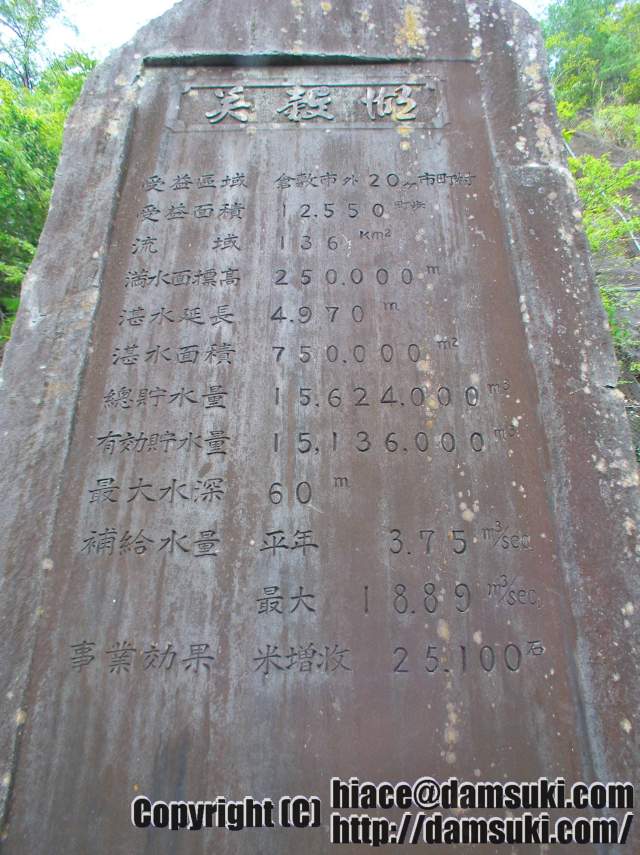 美穀湖
受益区域 倉敷市外20ヶ市町村
受益面積 12.550町歩
流域 136 Km²
満水面標高 250.000m
湛水延長 4.970m
湛水面積 750.000m²
總貯水量 15.624.000m³
有効貯水量 15,136.000m³
最大水深 60m
補給水量 平年 3.75m³/sec
最大 18.89m³/sec
事業効果 米増收 25.100石
Copyright (C) hiace@damsuki.com
http://damsuki.com/